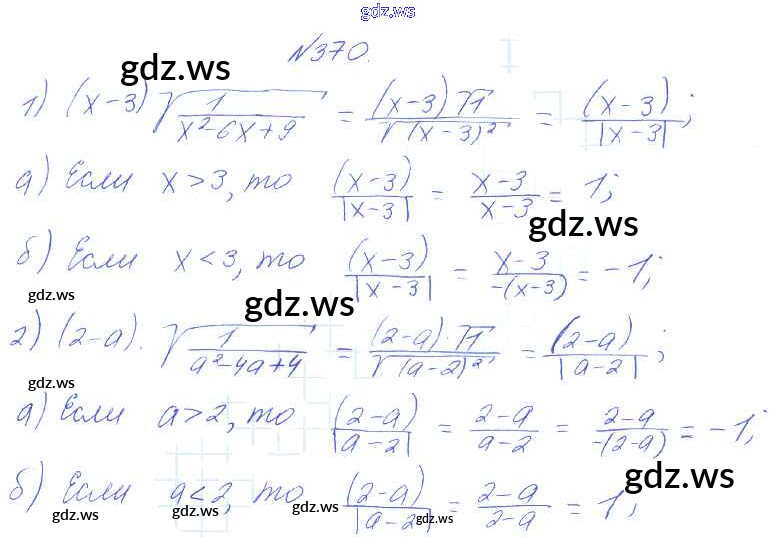 gdz.ws
N370.
gdz.ws
1) (x-3) √(1/(x²-6x+9)) = (x-3)√1/√(x-3)² = (x-3)/|x-3|;
а) Если x>3, то (x-3)/|x-3| = x-3/x-3 = 1;
gdz.ws
б) Если x<3, то (x-3)/|x-3| = x-3/-(x-3) = -1;
gdz.ws gdz.ws
2) (2-a)·√(1/(a²-4a+4)) = (2-a)·√1/√(a-2)² = (2-a)/|a-2|;
gdz.ws
а) Если a>2, то (2-a)/|a-2| = 2-a/a-2 = 2-a/-(2-a) = -1;
gdz.ws
б) Если a<2, то (2-a)/|a-2| = 2-a/2-a = 1;
gdz.ws gdz.ws gdz.ws gdz.ws